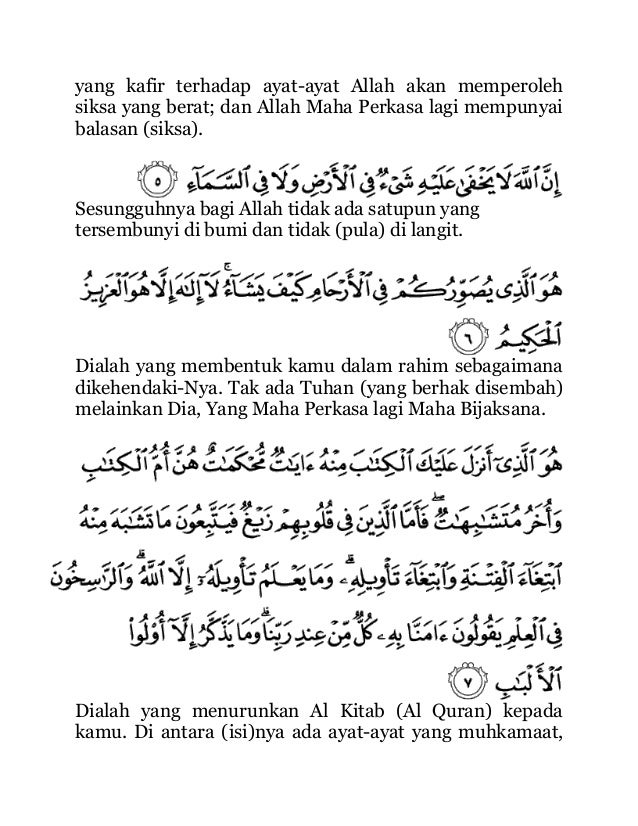 yang kafir terhadap ayat-ayat Allah akan memperoleh
siksa yang berat; dan Allah Maha Perkasa lagi mempunyai
balasan (siksa).
إِنَّ ٱللَّهَ لَا يَخۡفَىٰ عَلَيۡهِ شَيۡءٞ فِي ٱلۡأَرۡضِ وَلَا فِي ٱلسَّمَآءِ ٥
Sesungguhnya bagi Allah tidak ada satupun yang
tersembunyi di bumi dan tidak (pula) di langit.
هُوَ ٱلَّذِي يُصَوِّرُكُمۡ فِي ٱلۡأَرۡحَامِ كَيۡفَ يَشَآءُۚ لَآ إِلَٰهَ إِلَّا هُوَ ٱلۡعَزِيزُ
ٱلۡحَكِيمُ ٦
Dialah yang membentuk kamu dalam rahim sebagaimana
dikehendaki-Nya. Tak ada Tuhan (yang berhak disembah)
melainkan Dia, Yang Maha Perkasa lagi Maha Bijaksana.
هُوَ ٱلَّذِيٓ أَنزَلَ عَلَيۡكَ ٱلۡكِتَٰبَ مِنۡهُ ءَايَٰتٞ مُّحۡكَمَٰتٌ هُنَّ أُمُّ ٱلۡكِتَٰبِ
وَأُخَرُ مُتَشَٰبِهَٰتٞۖ فَأَمَّا ٱلَّذِينَ فِي قُلُوبِهِمۡ زَيۡغٞ فَيَتَّبِعُونَ مَا تَشَٰبَهَ مِنۡهُ
ٱبۡتِغَآءَ ٱلۡفِتۡنَةِ وَٱبۡتِغَآءَ تَأۡوِيلِهِۦۗ وَمَا يَعۡلَمُ تَأۡوِيلَهُۥٓ إِلَّا ٱللَّهُۗ وَٱلرَّٰسِخُونَ
فِي ٱلۡعِلۡمِ يَقُولُونَ ءَامَنَّا بِهِۦ كُلّٞ مِّنۡ عِندِ رَبِّنَاۗ وَمَا يَذَّكَّرُ إِلَّآ أُوْلُواْ
ٱلۡأَلۡبَٰبِ ٧
Dialah yang menurunkan Al Kitab (Al Quran) kepada
kamu. Di antara (isi)nya ada ayat-ayat yang muhkamaat,